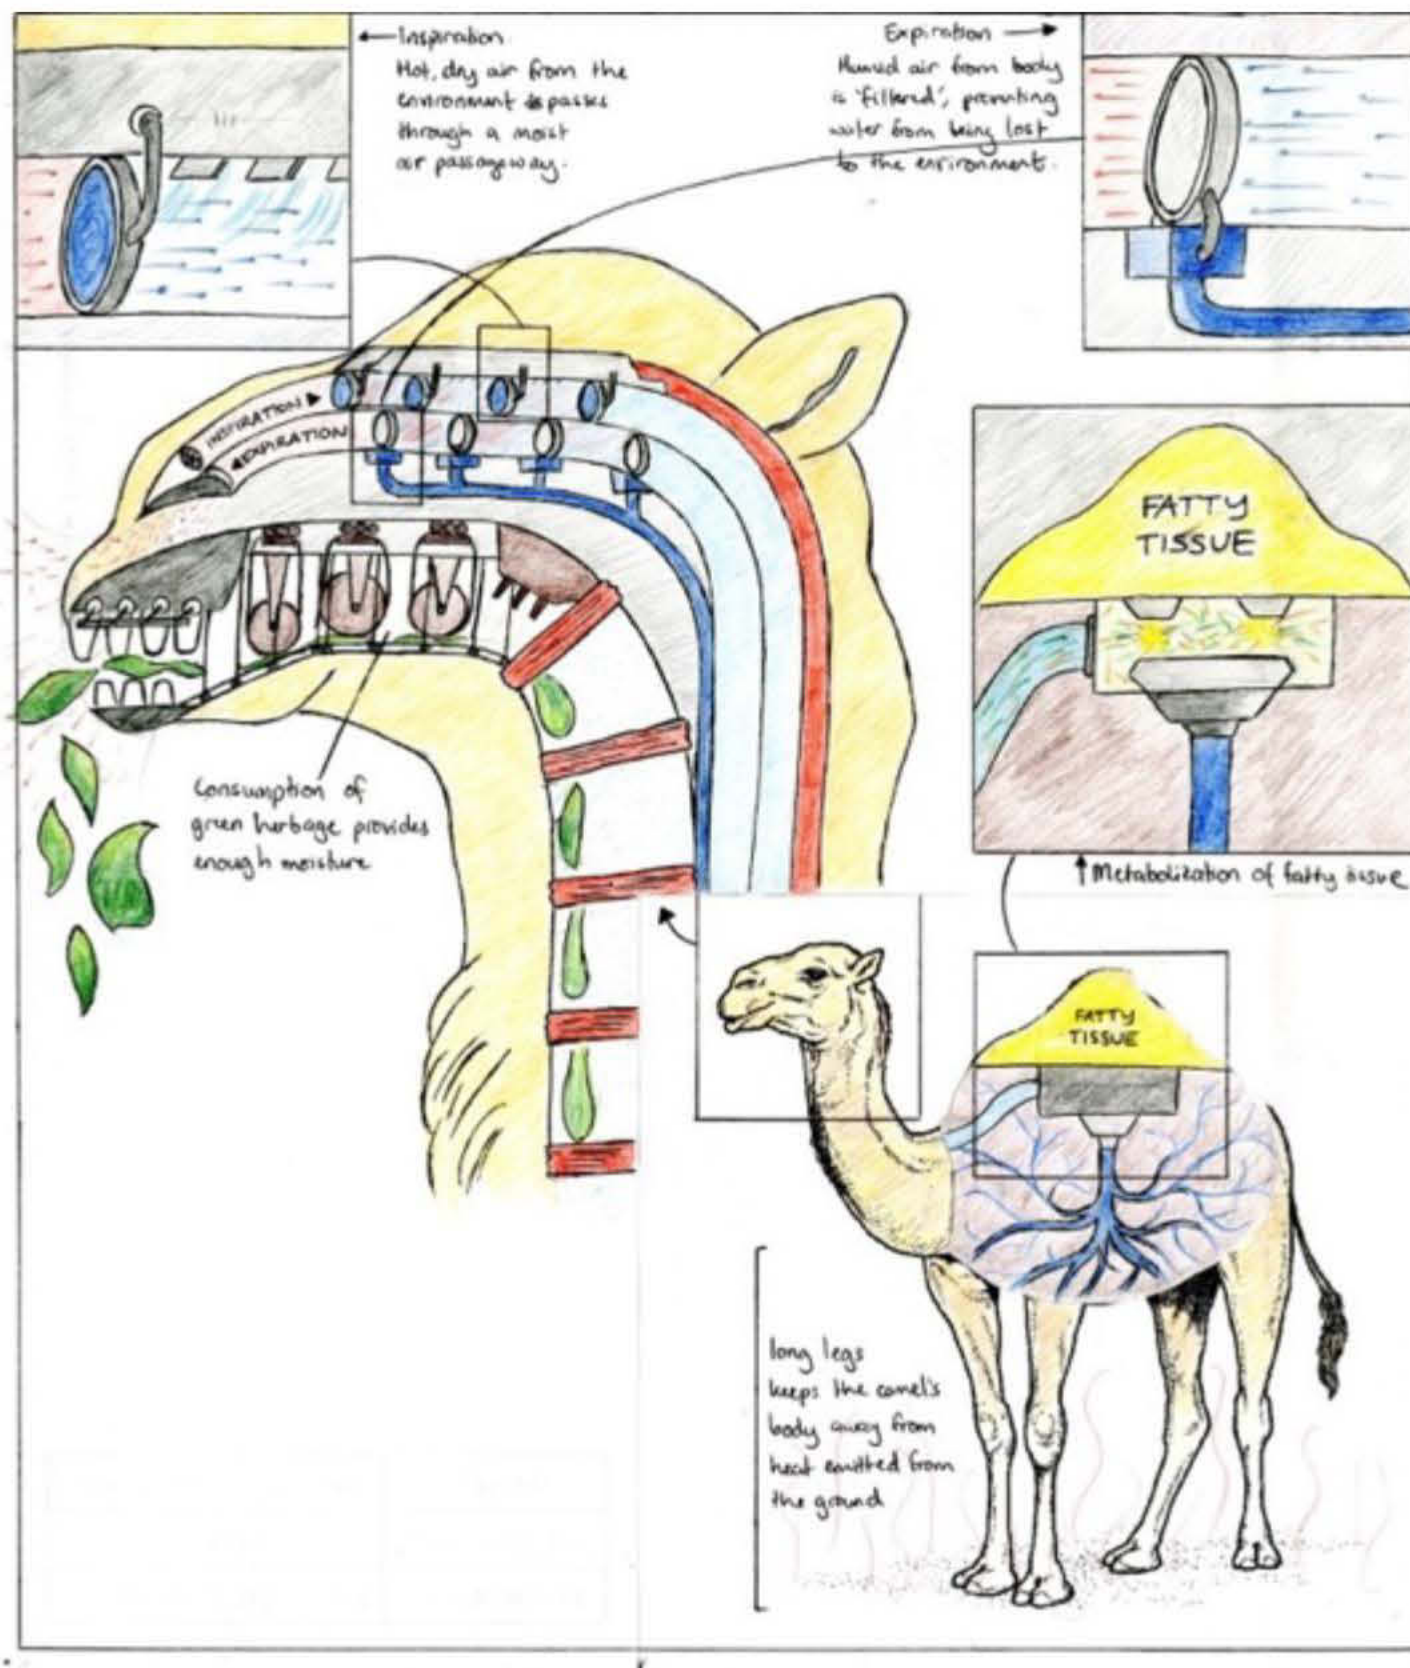 Inspiration
Hot, dry air from the
environment passes
through a moist
air passageway.
Expiration
Humid air from body
is 'filtered', preventing
water from being lost
to the environment.
INSPIRATION
EXPIRATION
FATTY
TISSUE
Consumption of
green herbage provides
enough moisture
Metabolization of fatty tissue
FATTY
TISSUE
long legs
keeps the camel's
body away from
heat emitted from
the ground